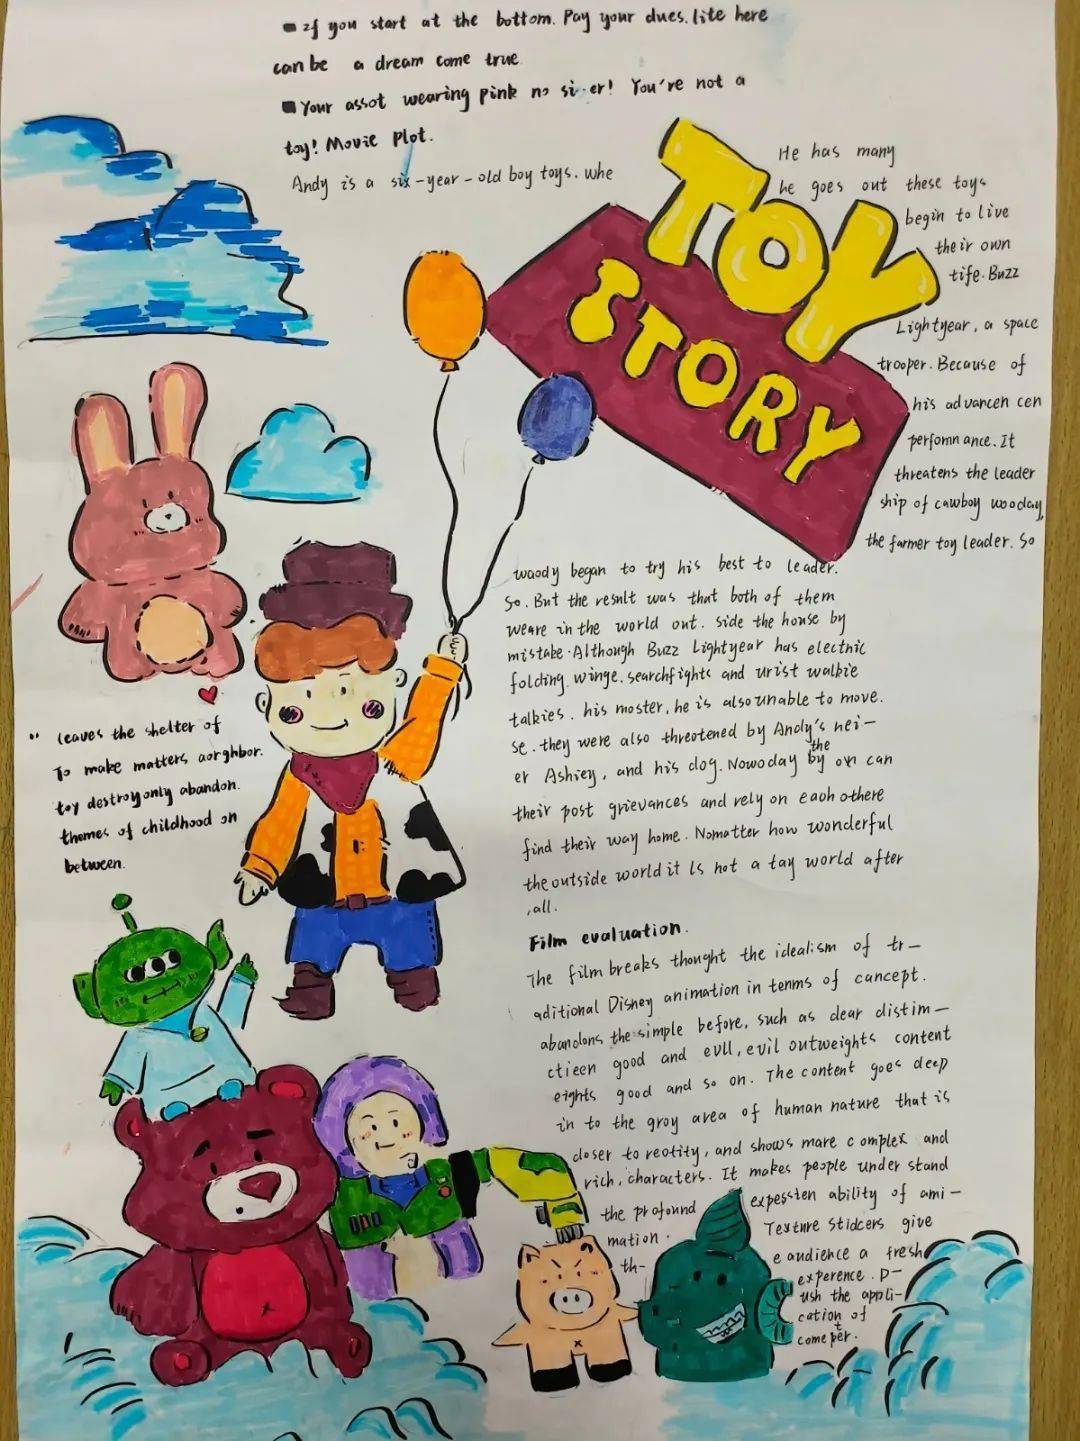 If you start at the bottom. Pay your dues. lite here
can be a dream come true
Your assot wearing pink no si er! You're not a
toy! Movie Plot.
Andy is a six-year-old boy toys. whe
He has many
he goes out these toys
begin to live
their own
tife. Buzz
Lightyear, a space
trooper. Because of
his advancen cen
perfomnance. It
threatens the leader
ship of cawboy wooday,
the farmer toy leader. So
TOY
STORY
waody began to try his best to leader.
So. But the result was that both of them
weare in the world out. side the house by
mistake. Although Buzz Lightyear has electric
folding. winge. searchfights and urist walkie
talkies. his moster, he is also unable to move.
se. they were also threotened by Andy's nei-
er Ashiey, and his dog. Nowoday by the own can
their post grievances and rely on eaoh othere
find their way home. Nomatter how wonderful
the outside world it Is not a tay world after
,all.
leaves the shelter of
To make matters aorghbor.
toy destroy only abandon.
themes of childhood on
between.
Film evaluation.
The film breaks thought the idealism of tr-
aditional Disney animation in tenms of cancept.
abandons the simple before, such as dear distim-
ctieen good and evll, evil outweights content
eights good and so on. The content goes deep
in to the gray area of human nature that is
closer to reotity, and shows mare complex and
rich, characters. It makes people under stand
the profound expessten ability of ami-
mation. Texture stidcers give
th- e audience a fresh
experence. p-
ush the appli-
cation of
cometper.